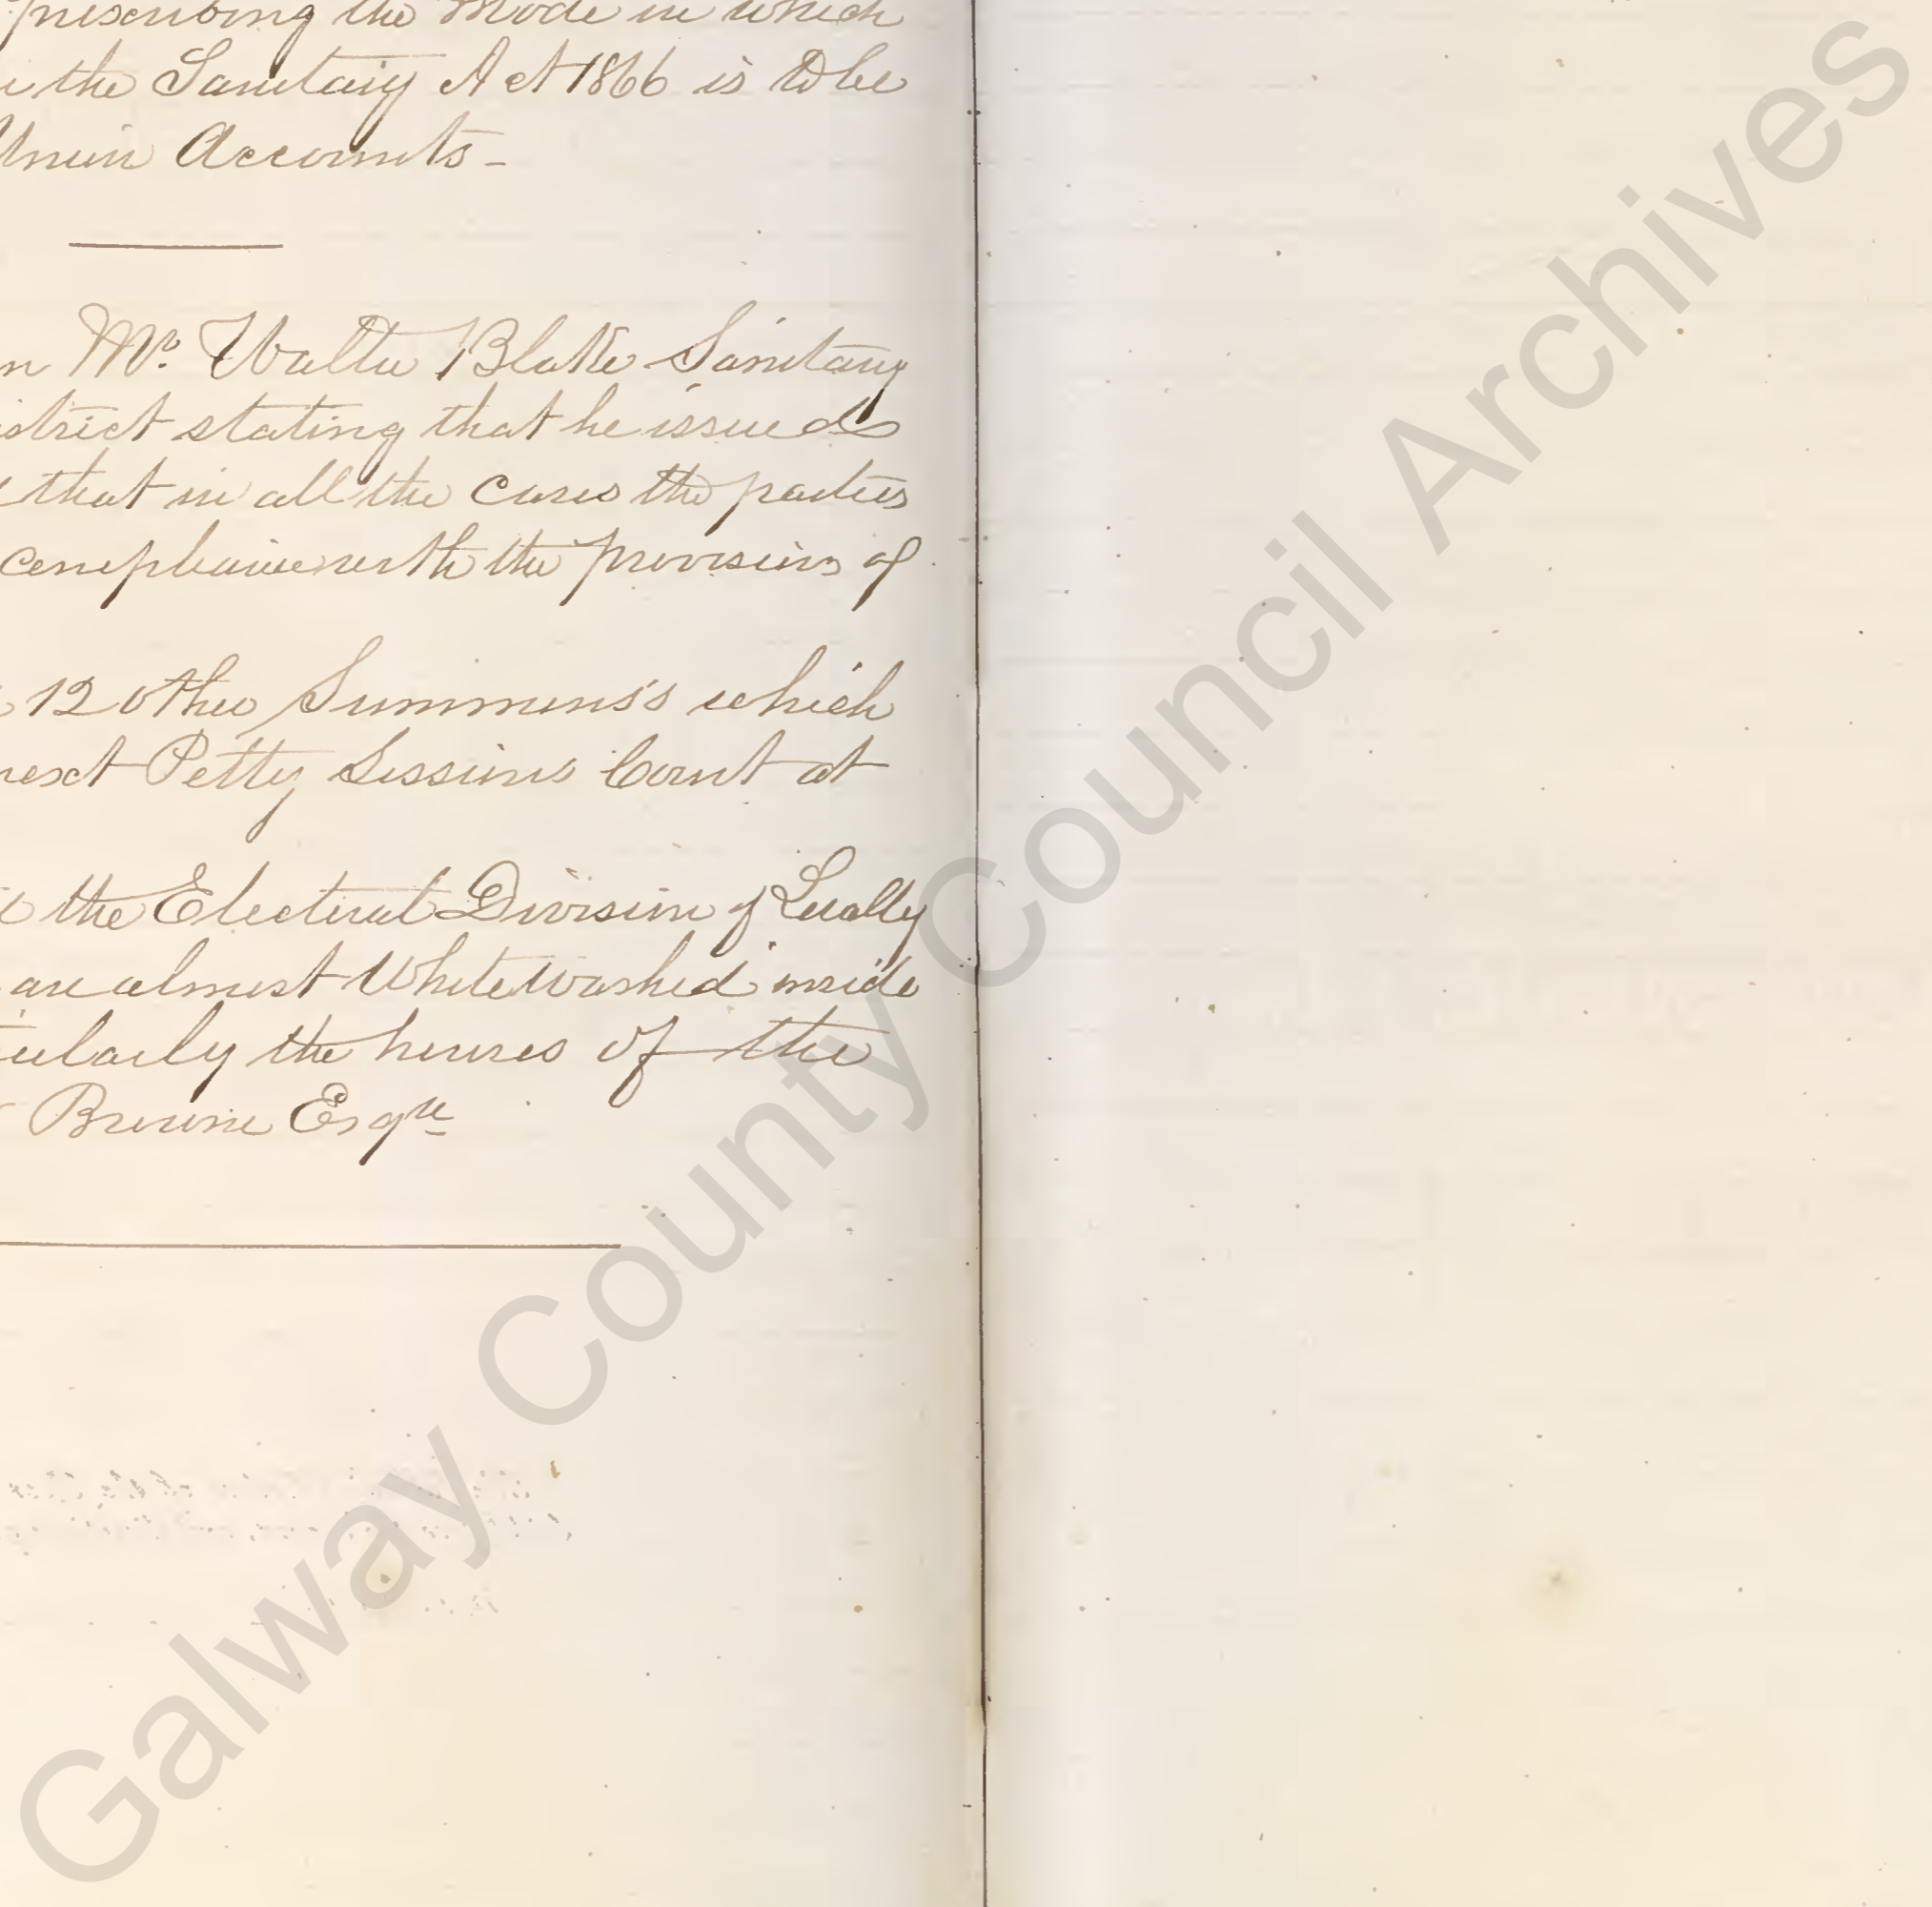 prescribing the Mode in which
the Sanitary Act 1866 is to be
Union Accounts -
Mr. Walter Blake Sanitary
district stating that he issued
that in all the cases the parties
compliance with the provisions of
12 other Summons's which
next Petty Sessions Court at
the Electoral Division of
are almost Whitewashed inside
the houses of the
Browne Esqre
Galway County Council Archives